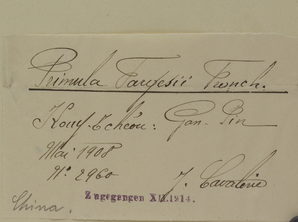 Primula Fargesii Franch.
Kouy-Tchéou: Gan-Pin
Mai 1908
No. 2960
J. Cavalerie
Zugegangen XII.1914.
China.